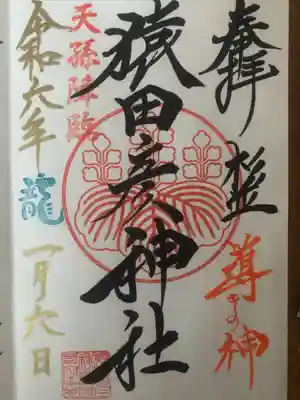 奉拝
杉並
導きの神
猿田彦神社
天孫降臨
令和六年
龍
一月六日